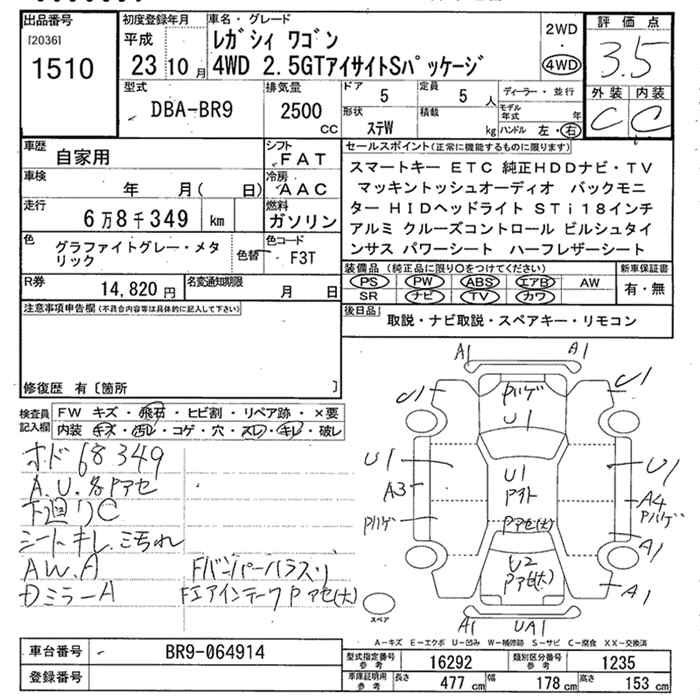 出品番号
[2036]
1510
初度登録年月
平成
23年10月
車名・グレード
レガシィ ワゴン
4WD 2.5GTアイサイトSパッケージ
2WD
・
4WD
評価点
3.5
外装 内装
C C
型式
DBA-BR9
排気量
2500
CC
ドア 5
定員 5 人
形状 ステW
積載 kg
ディーラー・並行
モデル年式 年
ハンドル 左・右
車歴 自家用
シフト FAT
車検 年 月( 日)
冷房 AAC
走行 6万8千349 km
燃料 ガソリン
色 グラファイトグレー・メタ
リック
色替
色コード F3T
R券 14,820円
名変通知期限 月 日
セールスポイント(正常に機能するものに限ります)
スマートキー ETC 純正HDDナビ・TV
マッキントッシュオーディオ バックモニ
ター HIDヘッドライト STi18インチ
アルミ クルーズコントロール ビルシュタイ
ンサス パワーシート ハーフレザーシート
装備品(純正品に限り○をつけてください)
PS PW ABS エアB AW
SR ナビ TV カワ
新車保証書
有・無
後日品
取説・ナビ取説・スペアキー・リモコン
注意事項申告欄(不具合内容等は具体的に記入して下さい)
修復歴 有〔箇所 〕
検査員記入欄
FW キズ・飛石・ヒビ割・リペア跡・×要
内装 キズ・汚レ・コゲ・穴・スレ・キレ・破レ
オド68349
A.U.各Pアセ
下廻りC
シートキレ.こ汚れ
AW.A
Dミラー A
Fバンパーハラスリ
FエアインテークPアセ(大)
A1 A1
U1 U1
Pハゲ
U1
U1 U1
U1
A3 Pアト A4
Pハゲ Pアセ(大) Pハゲ
U2 A1
Pアセ(大) A1
A1 UA1
スペア
A−キズ E−エクボ U−凹み W−補修跡 S−サビ C−腐食 XX−交換済
車台番号 BR9-064914
登録番号
型式指定番号参考 16292
類別区分番号参考 1235
車庫証明用参考
長さ 477 cm 幅 178 cm 高さ 153 cm